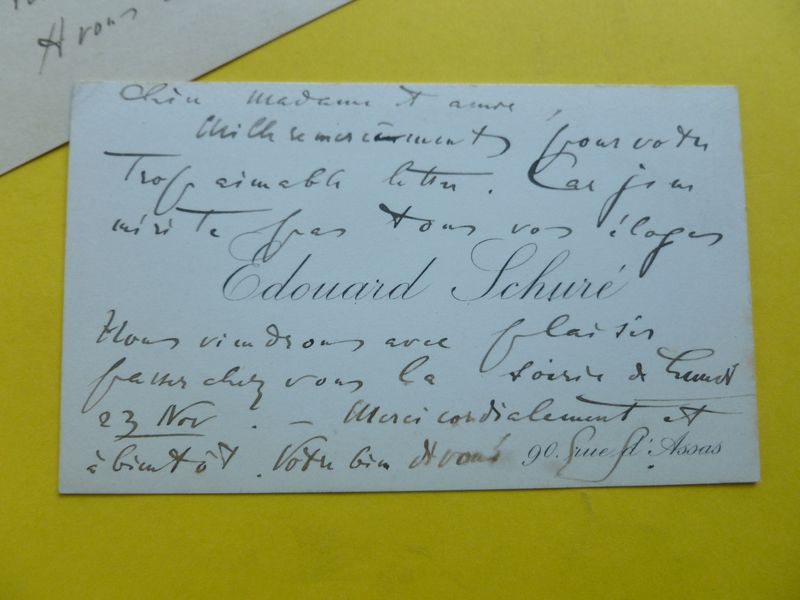 A vous
Chère madame et amie,
Mille remerciements pour votre
Trop aimable lettre. Car je ne
mérite pas tous vos éloges
Edouard Schuré
Nous viendrons avec plaisir
passer chez vous la soirée de Lundi
23 Nov. – Merci cordialement et
à bientôt. Votre bien dévoué
90. Rue d'Assas